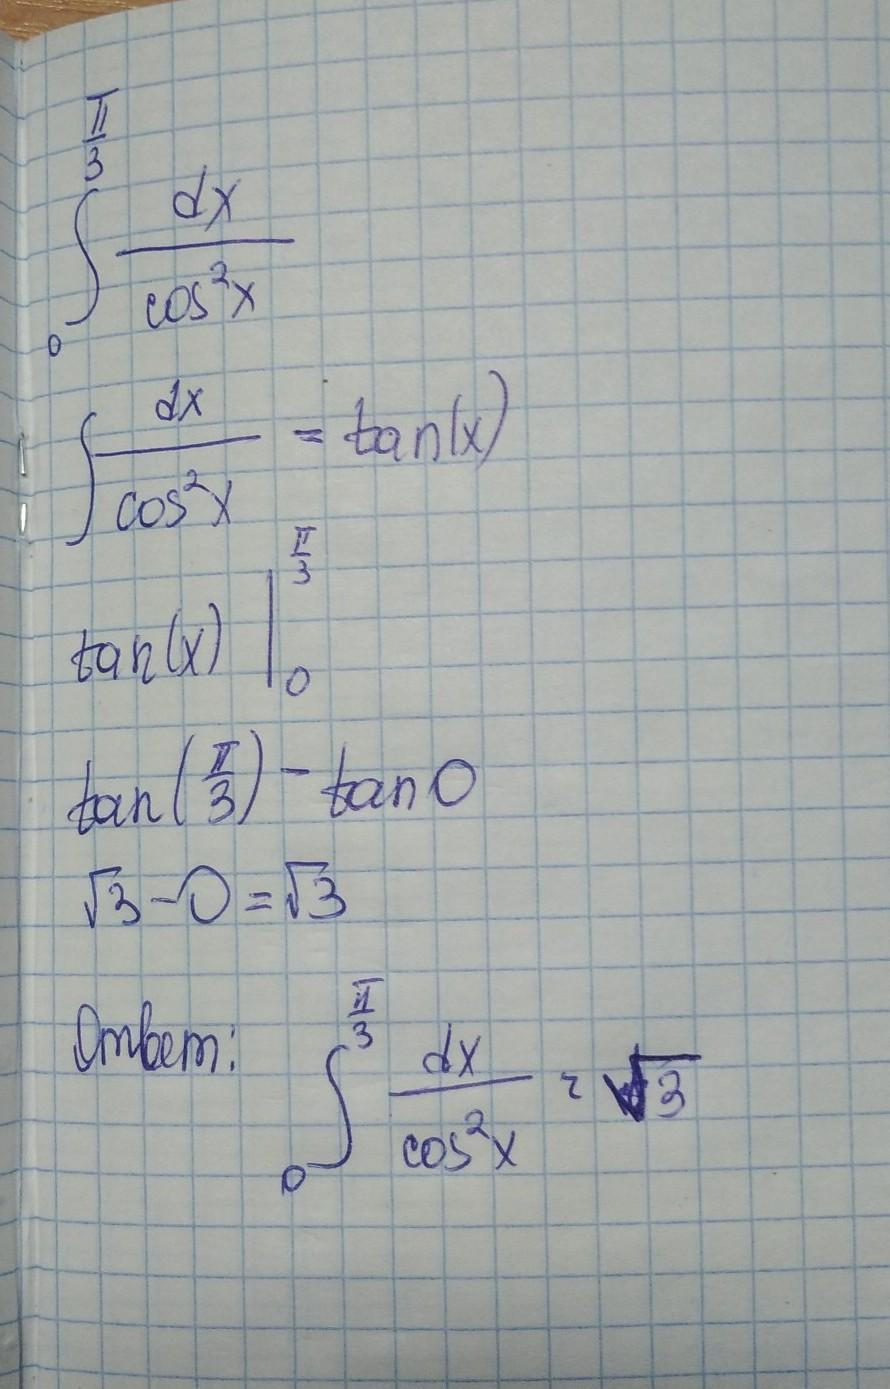 ∫₀^(π/3) dx/cos²x
∫ dx/cos²x = tan(x)
tan(x) |₀^(π/3)
tan(π/3) - tan0
√3-0=√3
Ответ: ∫₀^(π/3) dx/cos²x = √3